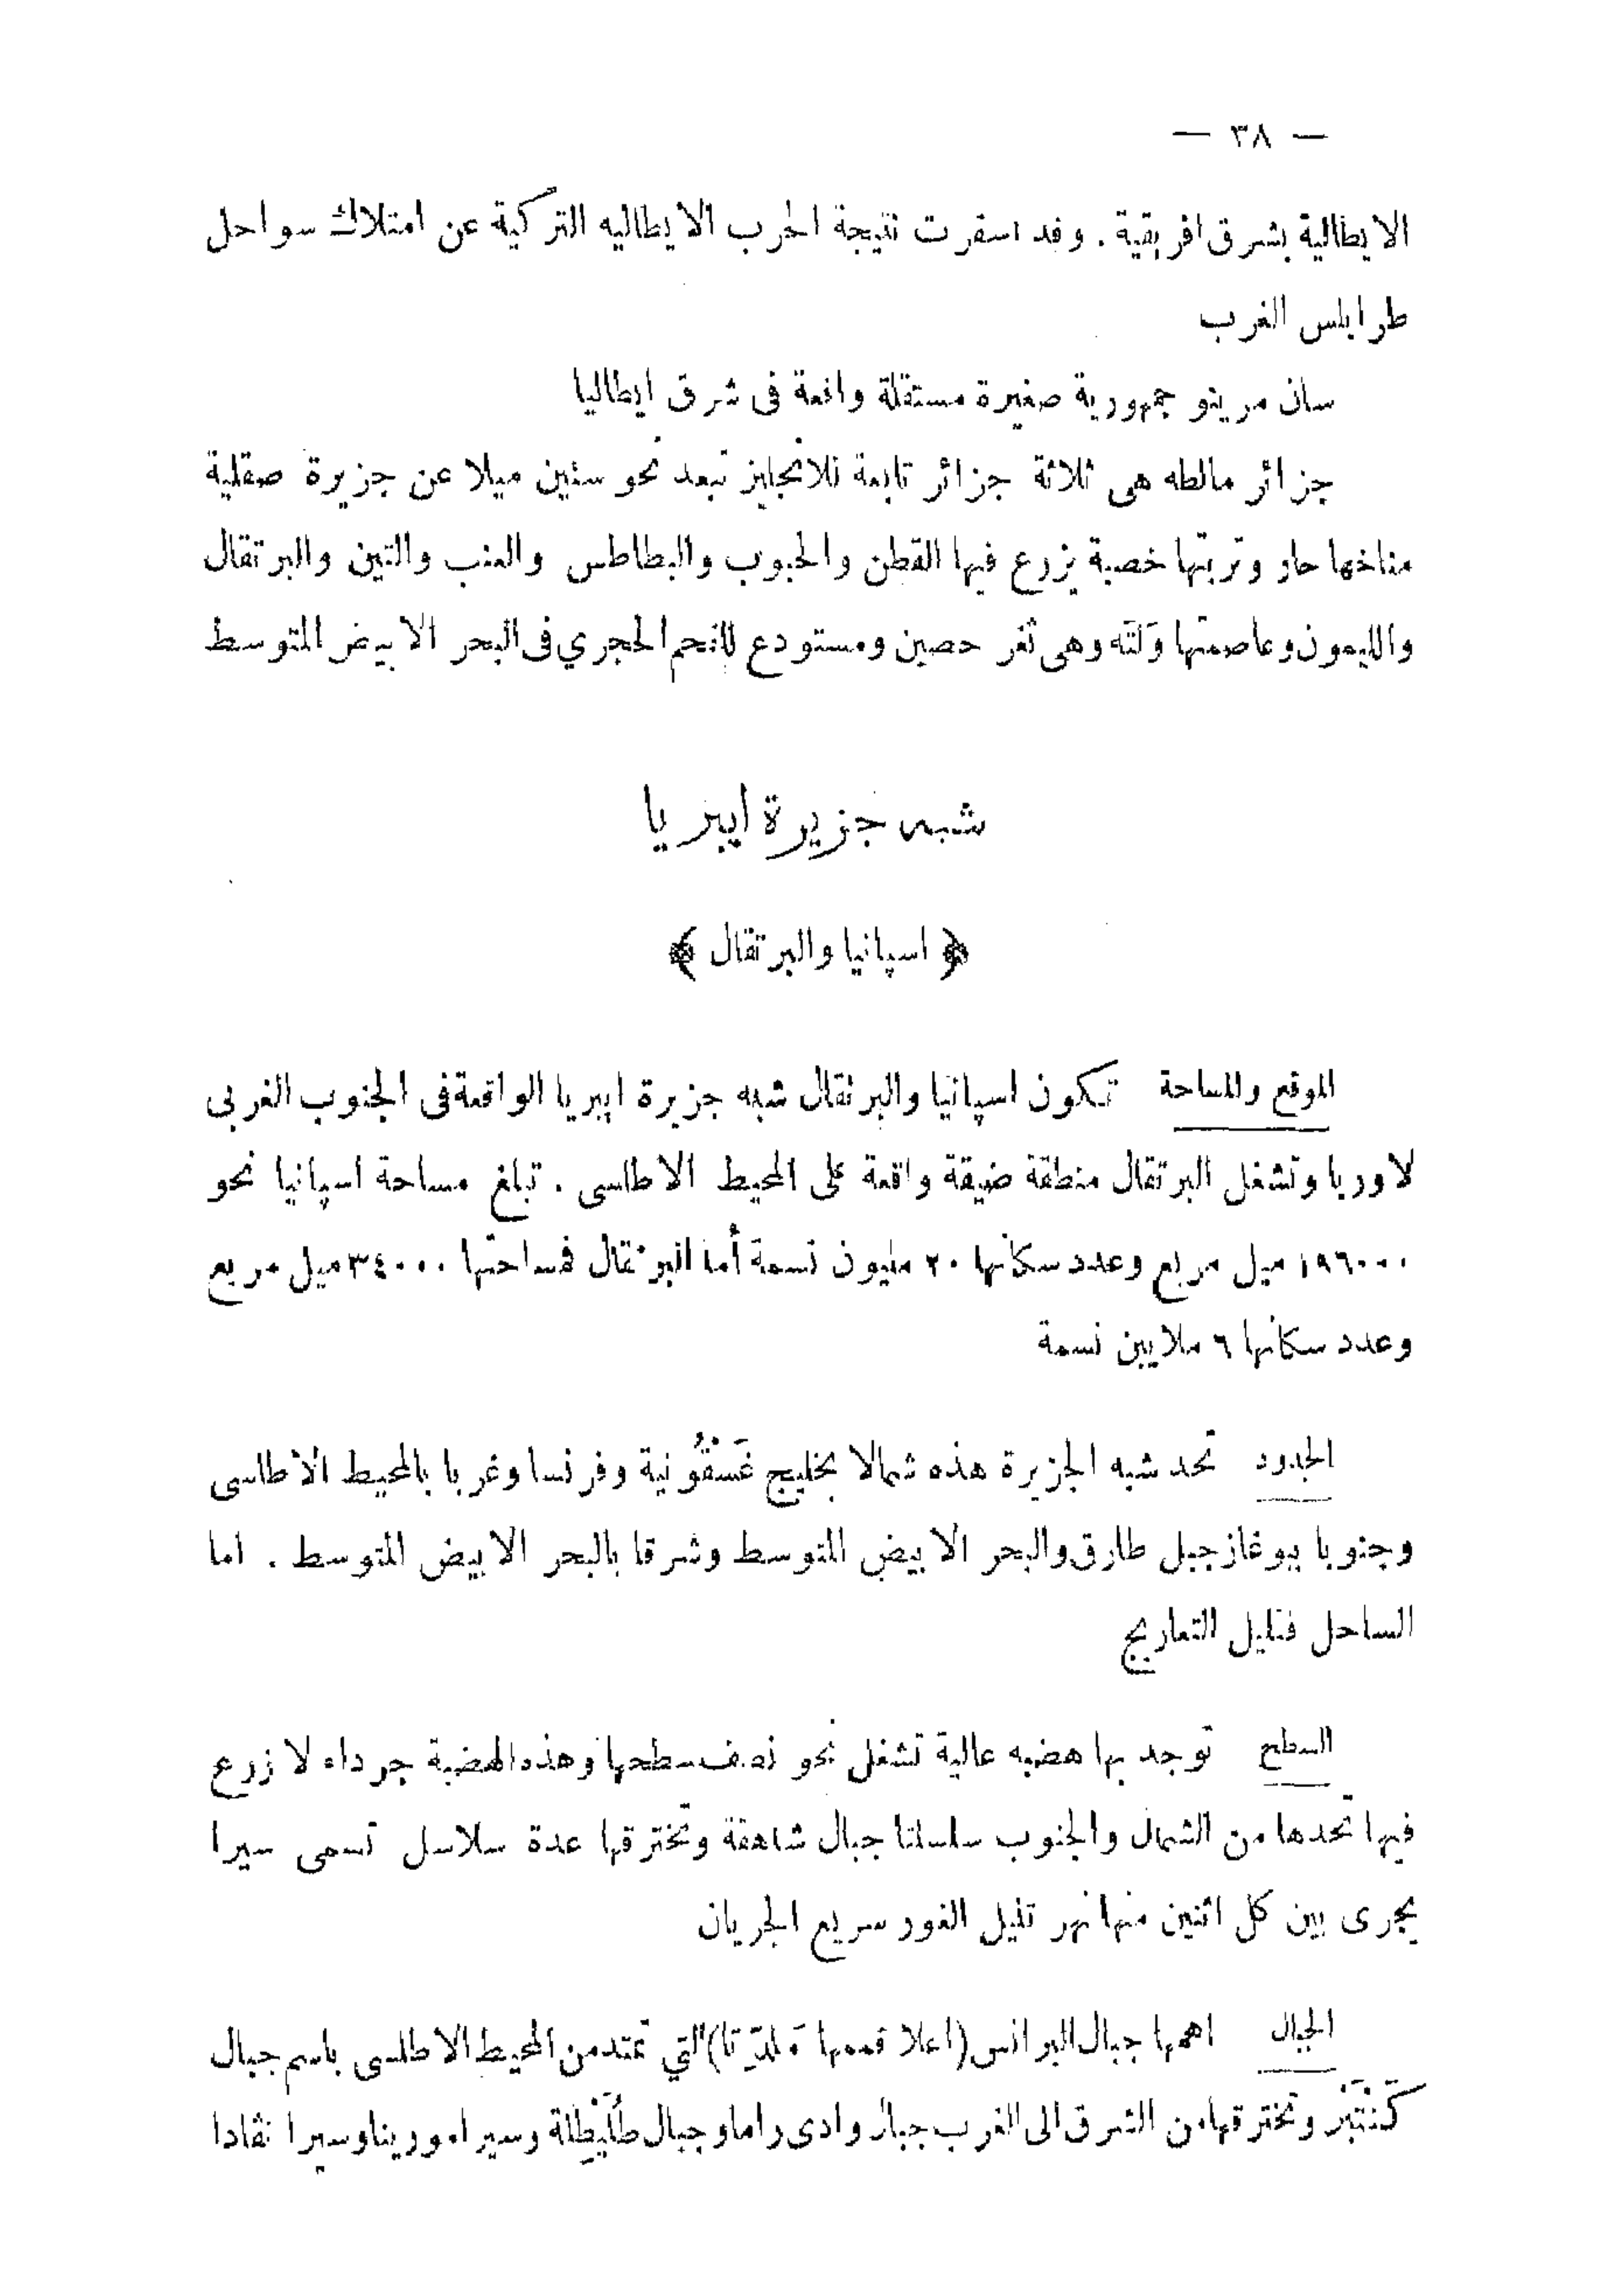 — ٣٨ —
الايطالية بشرق افريقية . وقد اسفرت نتيجة الحرب الايطاليه التركية عن امتلاك سواحل
طرابلس الغرب
سان مرينو جمهورية صغيرة مستقلة واقعة فى شرق ايطاليا
جزائر مالطه هى ثلاثة جزائر تابعة للانجليز تبعد نحو ستين ميلا عن جزيرة صقلية
مناخها حار وتربتها خصبة يزرع فيها القطن والحبوب والبطاطس والعنب والتين والبرتقال
والليمون وعاصمتها وَلَتَه وهى ثغر حصين ومستودع للفحم الحجري فى البحر الابيض المتوسط
شبه جزيرة ايبريا
﴿ اسپانيا والبرتقال ﴾
الموقع والمساحة تتكون اسپانيا والبرتقال شبه جزيرة ايبريا الواقعة فى الجنوب الغربى
لاوربا وتشغل البرتقال منطقة ضيقة واقعة على المحيط الاطلسى . تبلغ مساحة اسپانيا نحو
١٩٦٠٠٠ ميل مربع وعدد سكانها ٢٠ مليون نسمة أما البرتقال فمساحتها ٣٤٠٠٠ ميل مربع
وعدد سكانها ٦ ملايين نسمة
الحدود تحد شبه الجزيرة هذه شمالا بخليج غَسْقُونية وفرنسا وغربا بالمحيط الاطلسى
وجنوبا ببوغاز جبل طارق والبحر الابيض المتوسط وشرقا بالبحر الابيض المتوسط . اما
الساحل فقليل التعاريج
السطح توجد بها هضبه عالية تشغل نحو نصف سطحها وهذه الهضبة جرداء لا زرع
فيها تحدها من الشمال والجنوب سلسلتا جبال شاهقة وتخترقها عدة سلاسل تسمى سيرا
يجرى بين كل اثنين منها نهر قليل الغور سريع الجريان
الجبال اهمها جبال البرانس (اعلا قممها مَلدِّتا) التي تمتد من المحيط الاطلسى باسم جبال
كَنْتَبْر وتخترقها من الشرق الى الغرب جبال وادى راما وجبال طُلَيْطِلة وسيرا مورينا وسيرا نقادا